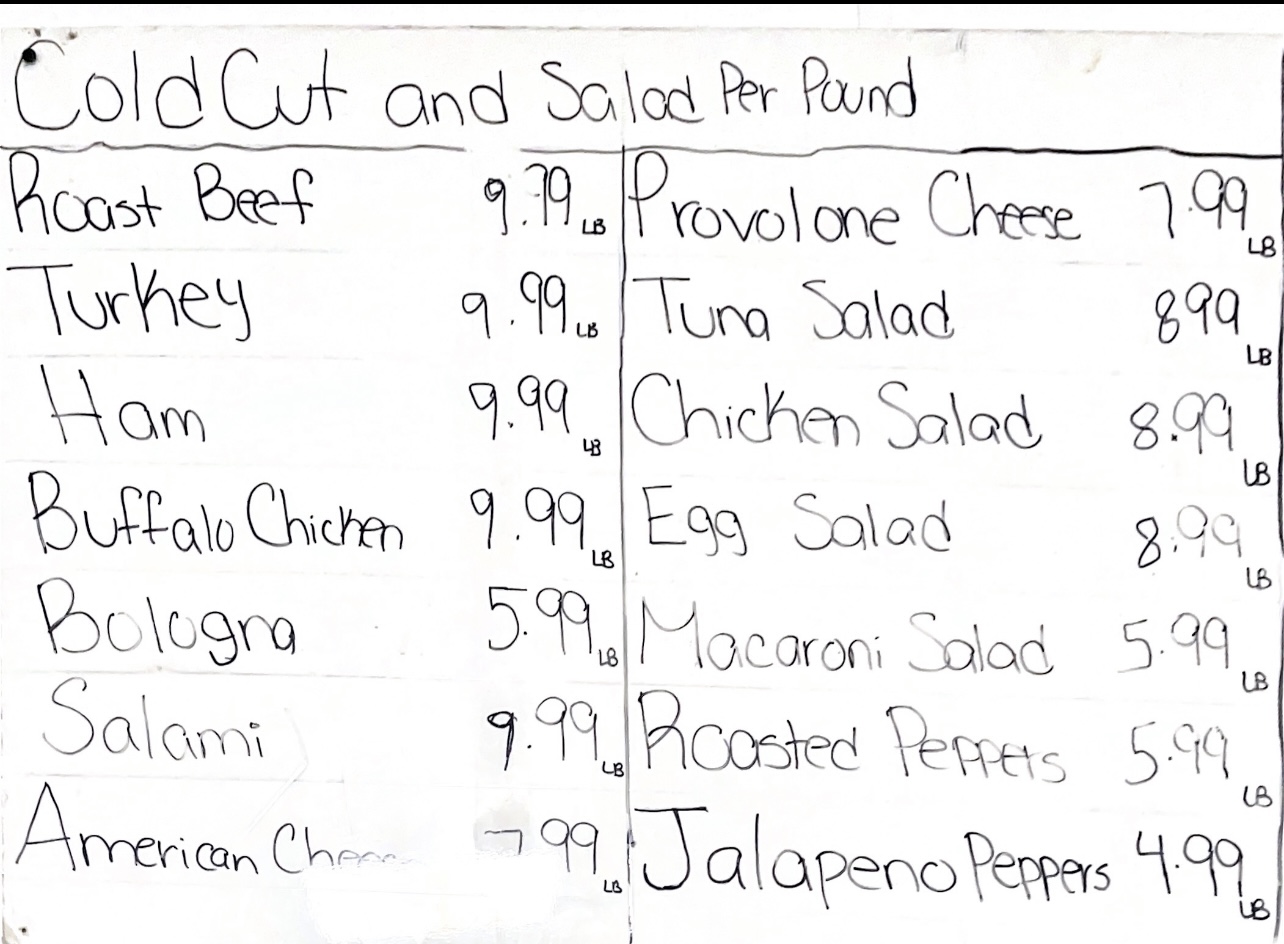 Cold Cut and Salad Per Pound
Roast Beef 9.79 LB
Turkey 9.99 LB
Ham 9.99 LB
Buffalo Chicken 9.99 LB
Bologna 5.99 LB
Salami 9.99 LB
American 7 99 LB
Provolone Cheese 7.99 LB
Tuna Salad 899 LB
Chicken Salad 8.99 LB
Egg Salad 8.99 LB
Macaroni Salad 5.99 LB
Roasted Peppers 5.99 LB
Jalapeno Peppers 4.99 LB